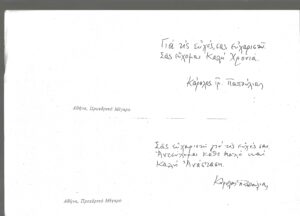 Για τις ευχές σας ευχαριστώ
Σας εύχομαι Καλή Χρονιά
Κάρολος Γρ. Παπούλιας
Αθήνα, Προεδρικό Μέγαρο
Σας ευχαριστώ για τις ευχές σας
Αντεύχομαι κάθε καλό και
Καλή Ανάσταση
Κάρολος Παπούλιας
Αθήνα, Προεδρικό Μέγαρο